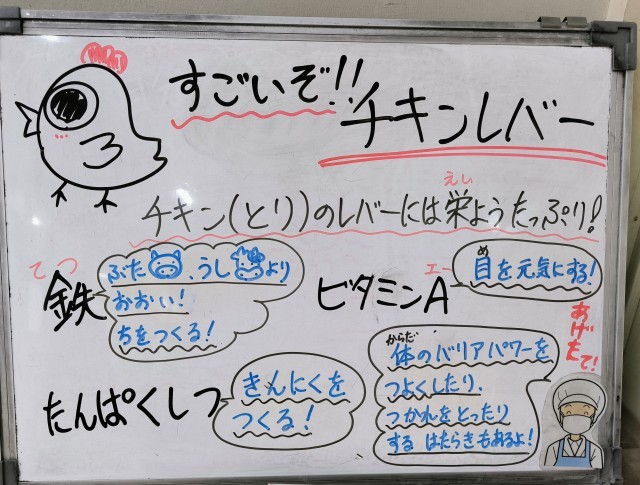 すごいぞ!!
チキンレバー
えい
チキン(とり)のレバーには栄ようたっぷり!
てつ
鉄
ぶた、うしより
おおい!
ちをつくる!
エー
ビタミンA
め
目を元気にする!
からだ
体のバリアパワーを
つよくしたり、
つかれをとったり
する はたらきもあるよ!
あげたて!
たんぱくしつ
きんにくを
つくる!